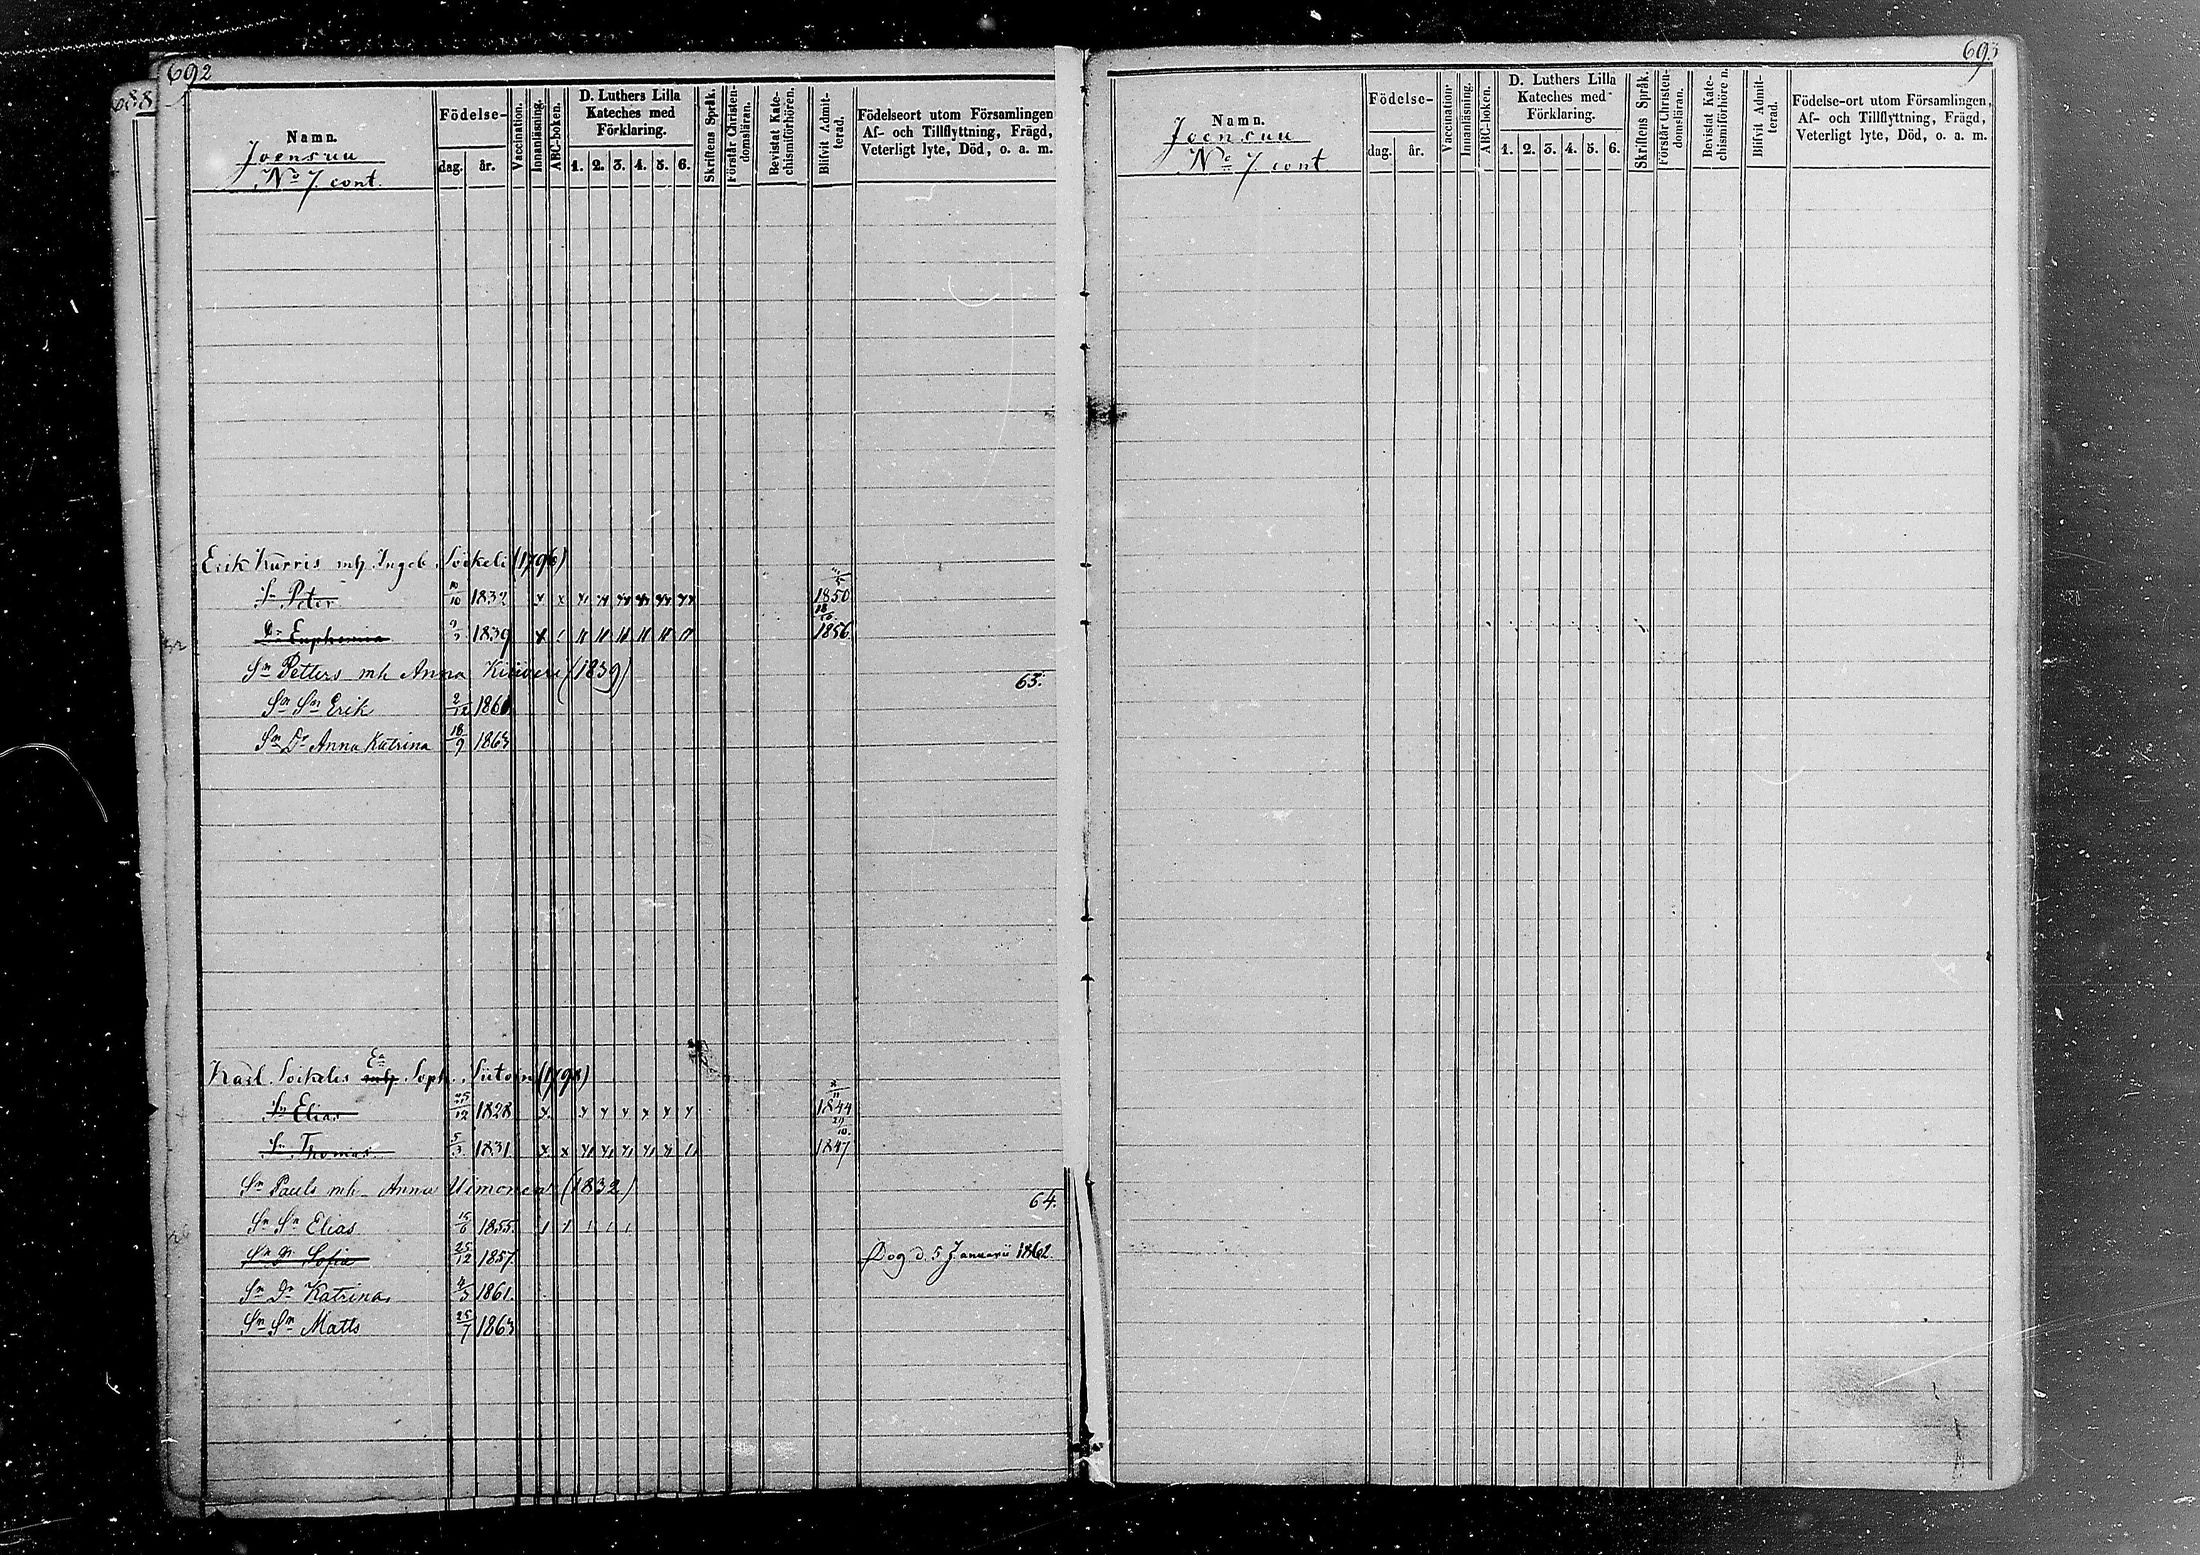 692
Namn.
Joensuu
No 7 cont.
Födelse-
dag. år.
Vaccination.
Innanläsning.
ABC-boken.
D. Luthers Lilla
Kateches med
Förklaring.
1. 2. 3. 4. 5. 6.
Skriftens Språk.
Förstår Christen-
domsläran.
Bevistat Kate-
chismiförhören.
Blifvit Admit-
terad.
Födelseort utom Församlingen
Af- och Tillflyttning, Frägd,
Veterligt lyte, Död, o. a. m.
Erik Kurris mh Ingeb. Soikeli (1796)
Sn Peter 10/10 1832 1850
18/10
Dr Euphemia 1839 1856
Sn Petters mh Anna (1839)
63.
Sn Sn Erik 2/12 1861
Sn Dr Anna Katrina 18/9 1863
Karl Soikelis Ea mh Soph. (1798)
Sn Elias 25/12 1828 1844
Sn Thomas 5/3 1831 1847
Sn Pauls mh Anna Uimonen (1832)
64.
Sn Sn Elias 15/6 1855
Sn Dr Sofia 25/12 1857 Dog d. 5 Januarii 1862
Sn Dr Katrina 4/3 1861
Sn Sn Matts 25/7 1863
693
Namn.
Joensuu
No 7. cont
Födelse-
dag. år.
Vaccination
Innanläsning.
ABC-boken.
D. Luthers Lilla
Kateches med
Förklaring.
1. 2. 3. 4. 5. 6.
Skriftens Språk.
Förstår Christen-
domsläran.
Bevistat Kate-
chismiförhöre n.
Blifvit Admit-
terad.
Födelse-ort utom Församlingen,
Af- och Tillflyttning, Frägd,
Veterligt lyte, Död, o. a. m.